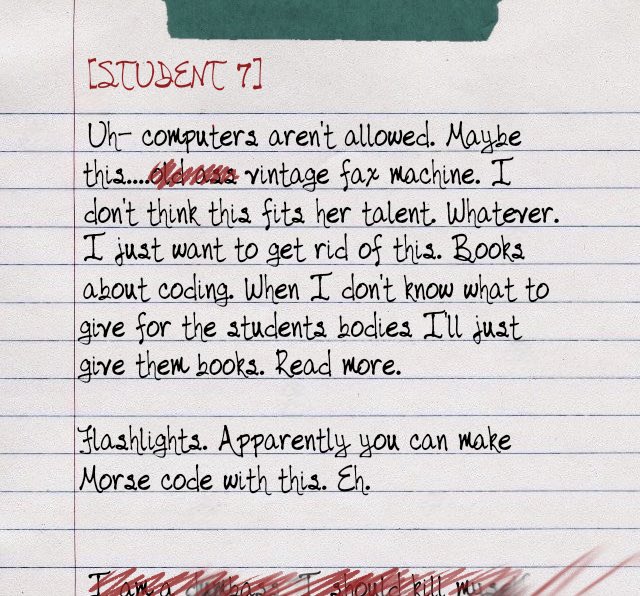 [STUDENT 7]
Uh- computers aren't allowed. Maybe
this....old ass vintage fax machine. I
don't think this fits her talent. Whatever.
I just want to get rid of this. Books
about coding. When I don't know what to
give for the students bodies I'll just
give them books. Read more.
Flashlights. Apparently you can make
Morse code with this. Eh.
I am a dumbass. I should kill myself